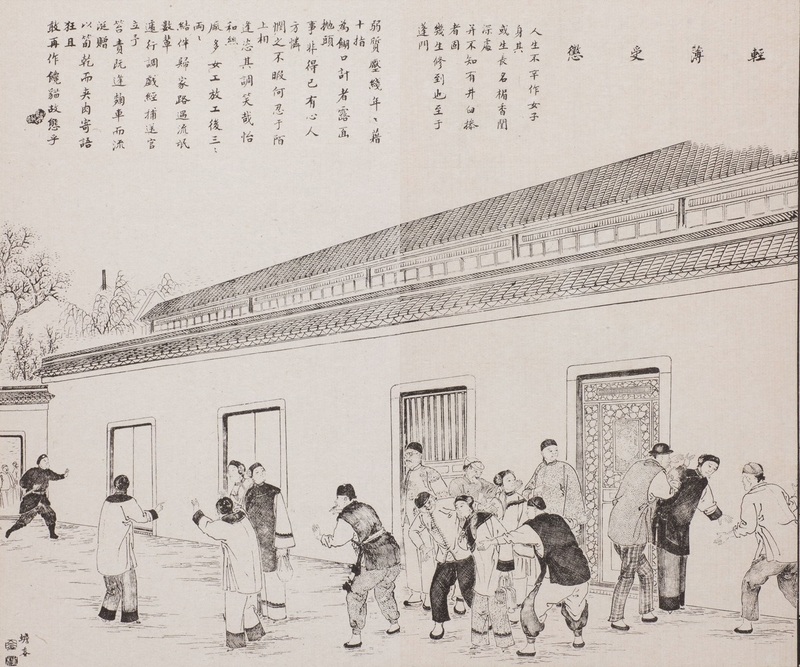 輕薄受懲
人生不幸作女子
身其
或生長名楣香閨
深處
并不知有井臼操
者固
幾生修到也至于
蓬門
弱質壓綫年〻藉
十指
為餬口計者露面
拋頭
事非得已有心人
方憐
憫之不暇何忍乎陌
上相
逢恣其調笑哉怡
和絲
廠多女工放工後三〻
兩〻
結伴歸家路過流氓
數輩
適行調戲經捕送官
立予
笞責既逢麴車而流
涎贈
以筍乾而炙肉寄語
狂且
敢再作饞貓故態乎
蟾香